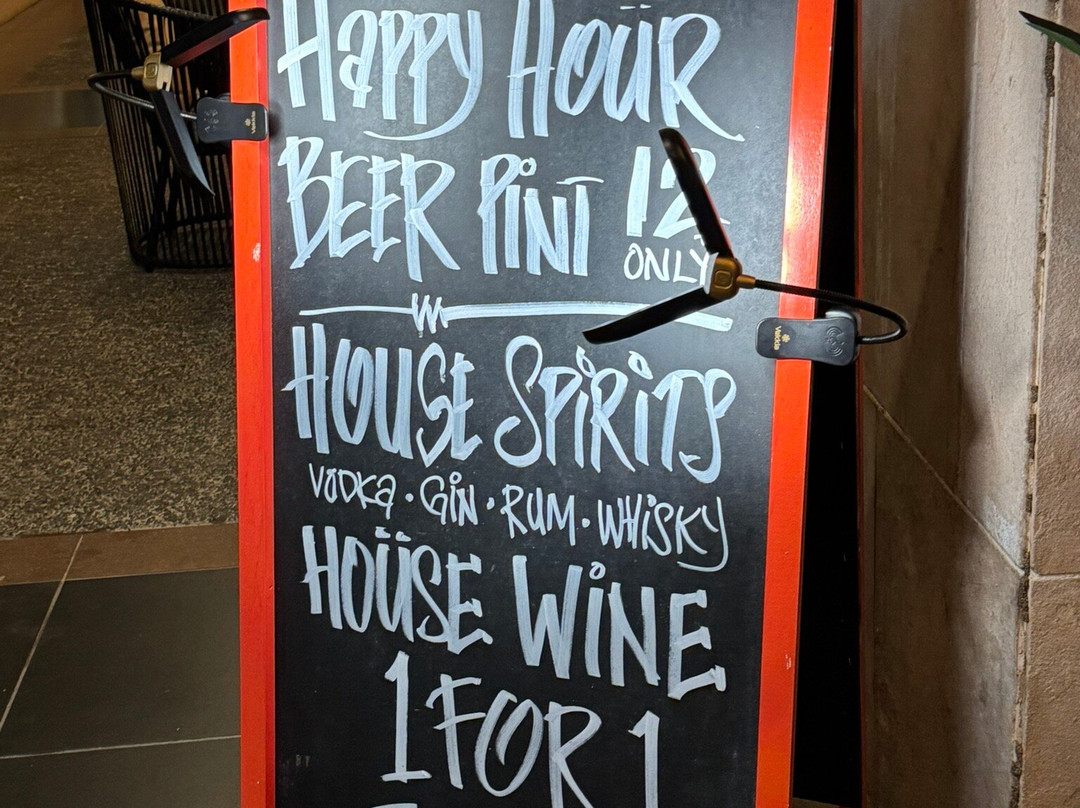 HAPPY HOÜR
BEER PINT 12
ONLY
HOUSE SPIRITS
VODKA · GIN · RUM · WHISKY
HOÜSE WINE
1 FOR 1